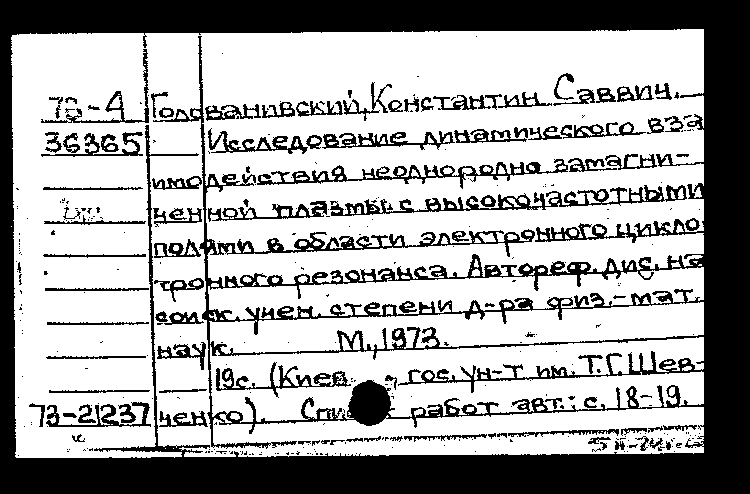 76-4 Голованивский, Константин Саввич.
36365 Исследование динамического вза
имодействия неоднородно замагни-
ченной плазмы с высокочастотными
полями в области электронного цикло
тронного резонанса. Автореф. дис. на
соиск. учен. степени д-ра физ.-мат.
наук. М., 1973.
19с. (Киев. гос. ун-т им. Т.Г. Шев-
73-21237 ченко). работ авт.: с. 18-19.